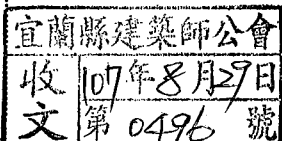 宜蘭縣建築師公會
收文
107年8月29日
第 0496 號